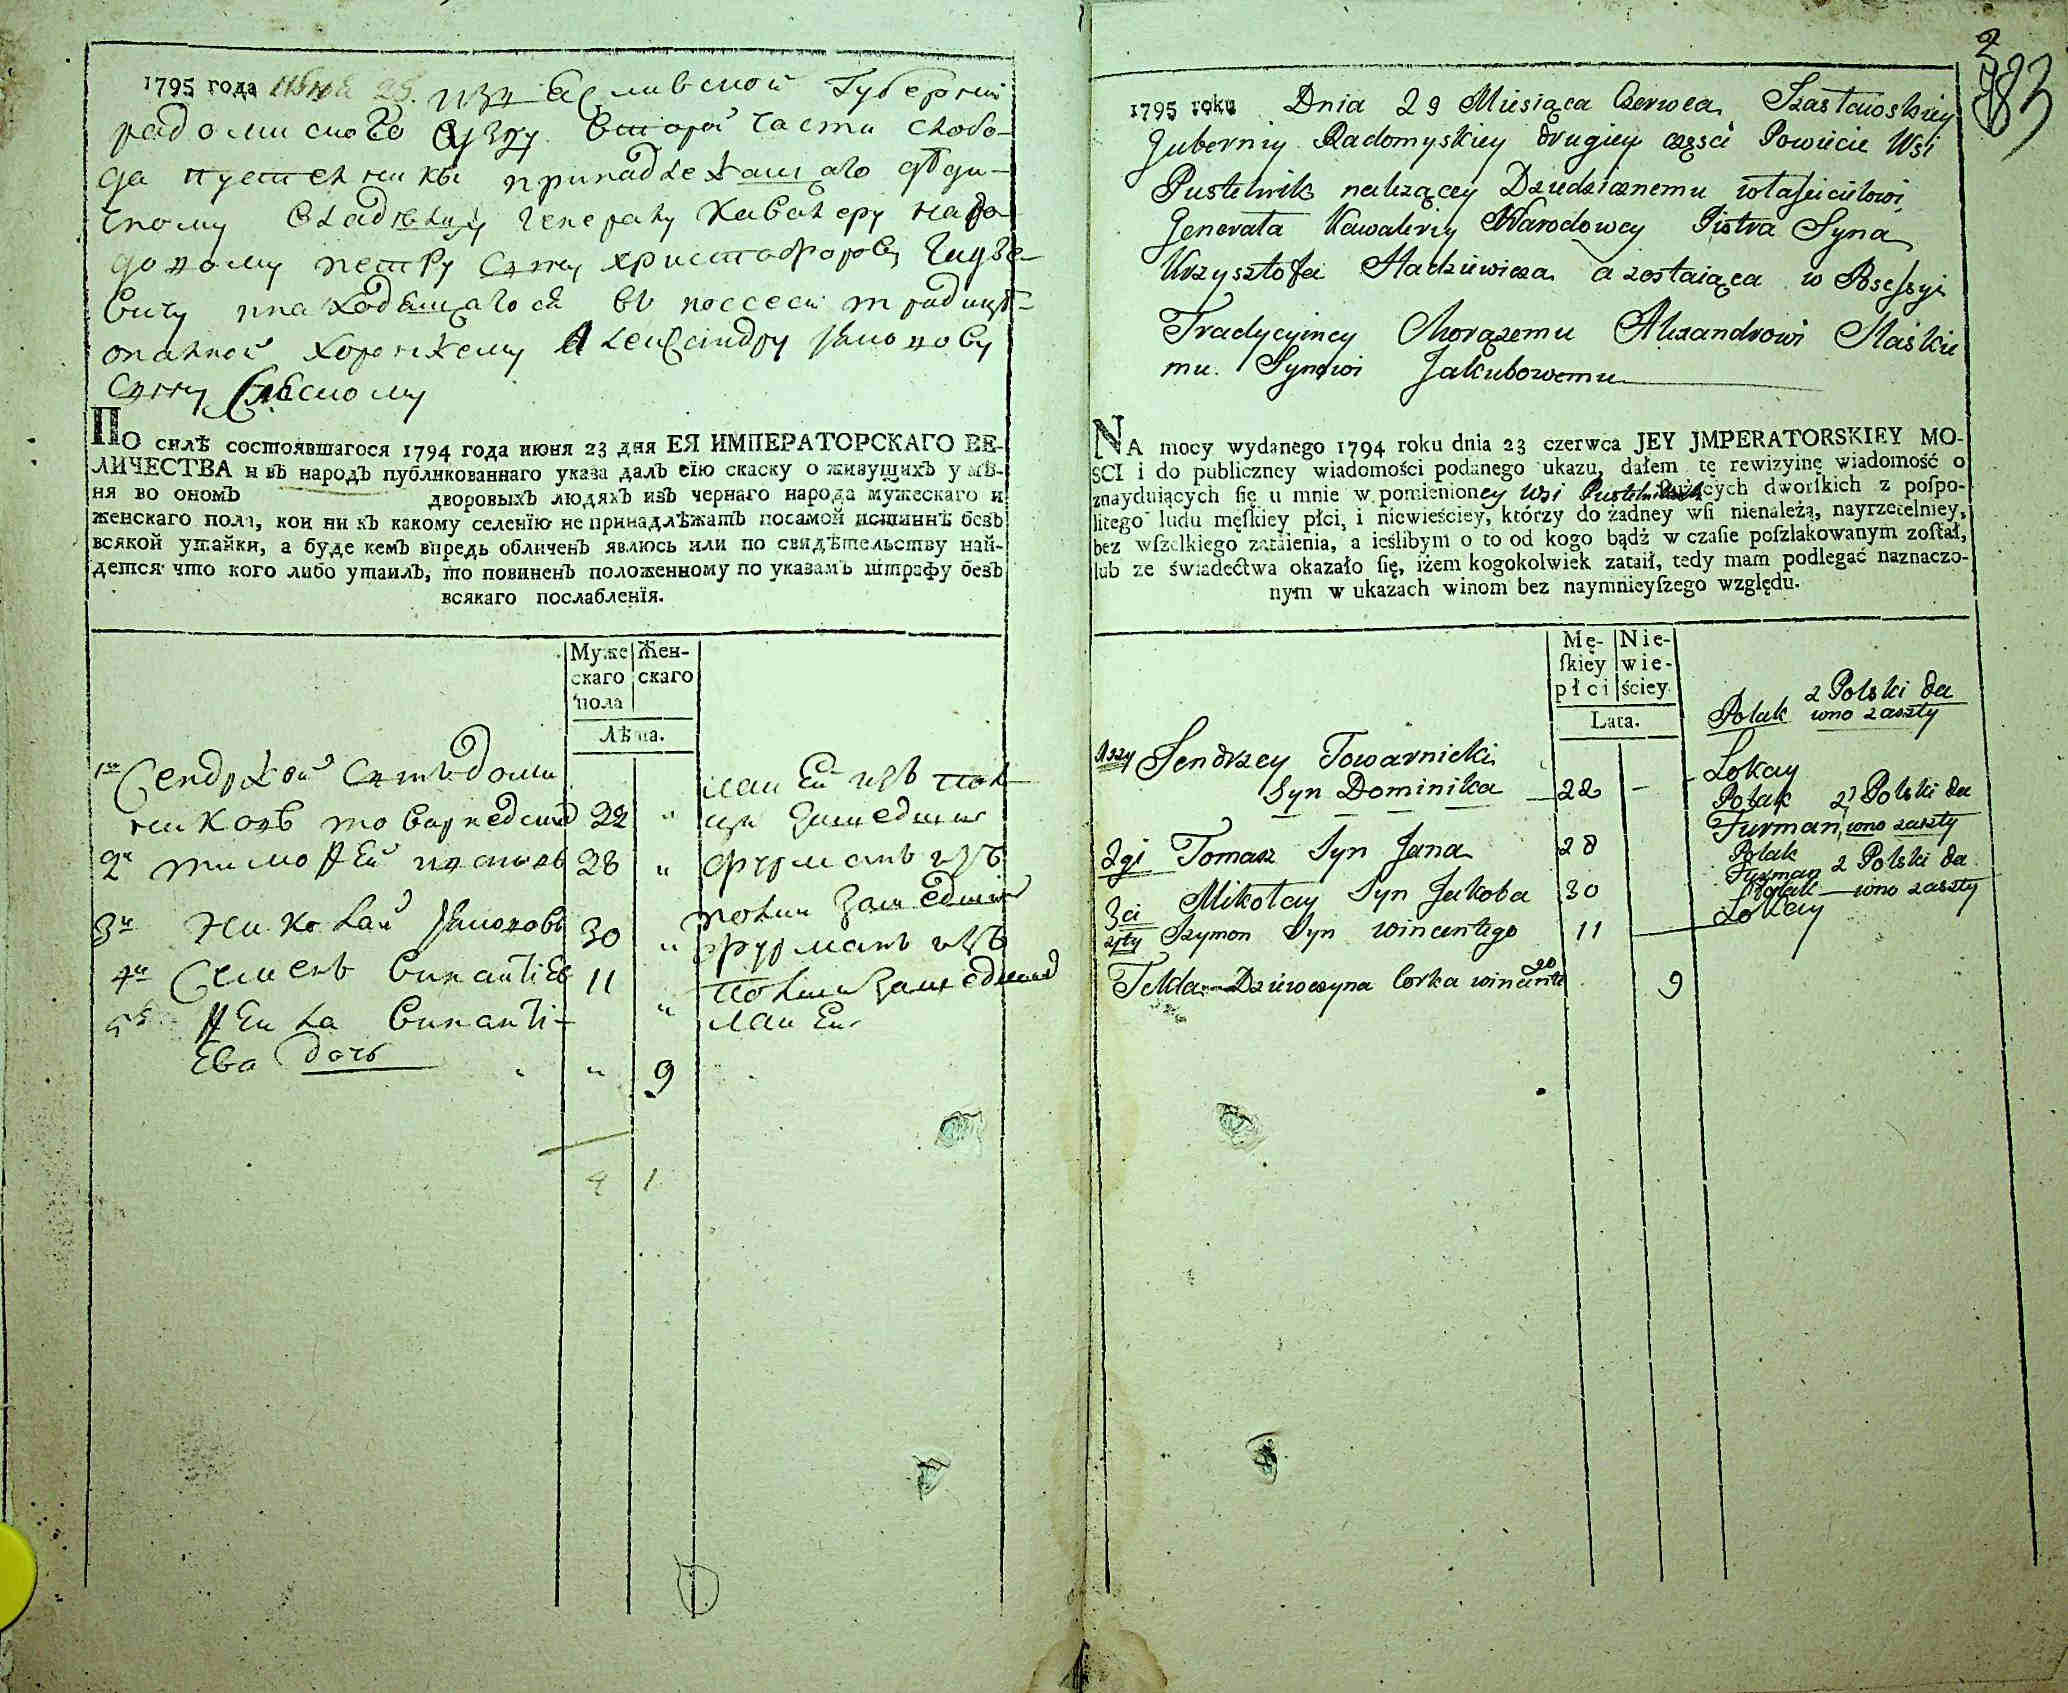 1795 года Июня 29. Изяславской Губернии
радомиского второй части слобо-
да пустелники принадлежащаго
ному владелцу генералу кавалеру наро
довому петру сыну христофорову
вичу находящагося въ поссеси традици
оналной хоронжему Александру Якопову
сыну
ПО силѣ состоявшагося 1794 года июня 23 дня ЕЯ ИМПЕРАТОРСКАГО ВЕ-
ЛИЧЕСТВА и въ народъ публикованнаго указа далъ сїю скаску о живущихъ у мѣ-
ня во ономъ дворовыхъ людяхъ изъ чернаго народа мужескаго и
женскаго пола, кои ни къ какому селенїю не принадлѣжатъ посамой истиннѣ безъ
всякой утайки, а буде кемъ впредь обличенъ явлюсь или по свидѣтельству най-
дется что кого либо утаилъ, то повиненъ положенному по указамъ штрафу безъ
всякаго послабленїя.
Муже Жен-
скаго скаго
пола
Лѣта.
1й Сендржей сынъ доми
никовъ товарнедкий 22 " лакей изъ пол
щи зашедшие
2й тимофей ивановъ 28 " фурманъ изъ
полши зашедший
3й Николай Якоповъ 30 " фурманъ изъ
4й Семенъ викантиев 11 " полши зашедший
лакей
5я Текла виканти-
ева дочь " 9
4 1
2
783
1795 roku Dnia 29 Miesiąca Czerwca Szasławskiey
Guberniy Radomyskiey drugiey częsci Powiecie Wsi
Pustelnik należącey Dziedzicznemu własicielowi
Generała Kawaleriy Narodowey Piotra Syna
Krzysztofa Hadziewicza a zostaiąca w Possessyi
Tradycyiney Chorążemu Alexandrowi Slaskie
mu Synowi Jakubowemu
NA mocy wydanego 1794 roku dnia 23 czerwca JEY JMPERATORSKIEY MO-
SCI i do publiczney wiadomości podanego ukazu, dałem tę rewizyinę wiadomość o
znayduiących się u mnie w pomienioney Wsi Pustelnikach dworſkich z poſpo-
litego ludu męſkiey płci, i niewieściey, którzy do żadney wſi nienależą, nayrzetelniey,
bez wſzelkiego zataienia, a ieślibym o to od kogo bądź w czaſie poſzlakowanym zoſtał,
lub ze świadectwa okazało się, iżem kogokolwiek zataił, tedy mam podlegać naznaczo-
nym w ukazach winom bez naymnieyſzego względu.
Mę- Nie-
ſkiey wie-
płci ściey.
Lata.
Polak z Polski da
wno zaszły
1szy Sendrzey Towarnicki Lokay
Syn Dominika 22 -
Polak z Polski da
Furman wno zaszły
2gi Tomasz Syn Jana 28
Polak z Polski da
Furman wno zaszły
3ci Mikołay Syn Jakoba 30
Polak
Lokay
4ty Szymon Syn wincentego 11
Tekla Dziewczyna Corka wincentego 9